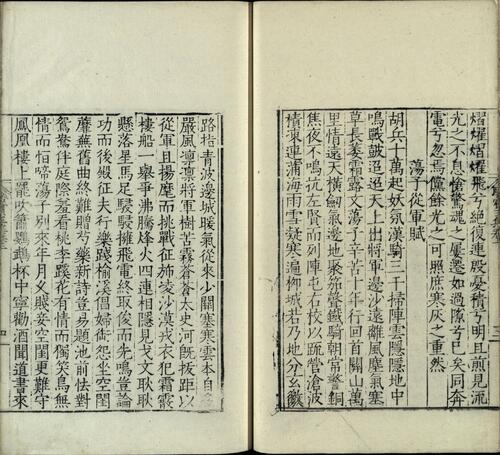 熠燿熠燿飛兮絕復連殷憂積兮明且煎見流
光之不息愴驚魂之屢遷如過隙兮已矣同奔
電兮忽焉儻餘光之可照庶寒灰之重然
蕩子從軍賦
胡兵十萬起妖氛漢騎三千掃陣雲隱隱地中
鳴戰鼓迢迢天上出將軍邊沙遠離風塵氣塞
草長萎霜露文蕩子辛苦十年行回首關山萬
里情遠天橫劔氣邊地聚笳聲鐵騎朝常警銅
焦夜不鳴抗左賢而列陣屯右校以疏營滄波
積凍連蒲海雨雪凝寒遍柳城若乃地分玄徼
路指青波邊城暖氣從來少關塞寒雲本自多
嚴風凛凛將軍樹苦霧蒼蒼太史河旣拔距以
從軍且揚麾而挑戰征斾凌沙漠戎衣犯霜霰
樓船一舉爭沸騰烽火四連相隱見戈文耿耿
懸落星馬足駸駸擁飛電終取俊而先鳴豈論
功而後殿征夫行樂踐榆溪倡婦銜怨坐空閨
蘼蕪舊曲終難贈芍藥新詩豈易題池前怯對
鴛鴦伴庭際羞看桃李蹊花有情而獨笑鳥無
情而恒啼蕩子別來年月久賤妾空閨更難守
鳳凰樓上罷吹簫鸚鵡杯中寧勸酒聞道書來